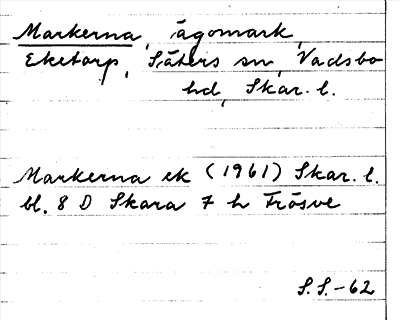 Markerna, ägomark,
Eketorp, Säters sn, Vadsbo
hd, Skar. l.
Markerna ek (1961) Skar. l.
bl. 8 D Skara 7 h Frösve
S.S.-62